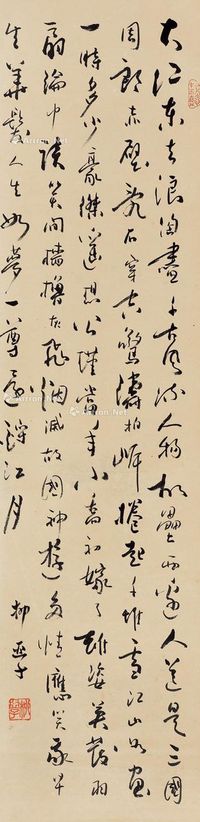 大江東去浪淘盡千古風流人物故壘西邊人道是三國
周郎赤壁亂石穿空驚濤拍岸捲起千堆雪江山如畫
一時多少豪傑遙想公瑾當年小喬初嫁了雄姿英發羽
扇綸巾談笑間檣櫓灰飛烟滅故國神遊多情應笑我早
生華髮人生如夢一尊還酹江月 柳亞子